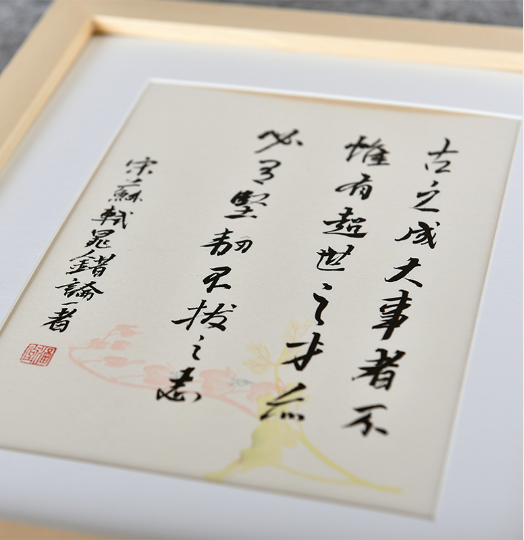 古之成大事者不
惟有超世之才亦
必有堅韌不拔之志
宋蘇軾晁錯論一者